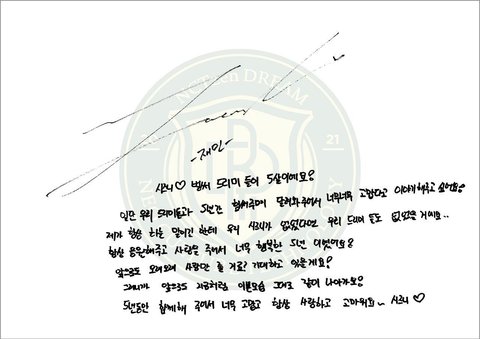 NCTzen DREAM
21
-재민-
시즈니♡ 벌써 드리미 들이 5살이에요?
일단 우리 드리미들과 5년간 함께해주며 달려와주어서 너무너무 고맙다고 이야기해주고 싶어요?
제가 항상 하는 말이긴 한데 우리 시즈니가 없었다면 우리 드리미 들도 없었을 거에요..
항상 응원해주고 사랑을 주어서 너무 행복한 5년 이었어요?
앞으로도 오래오래 사랑만 줄 기대하고 있을게요?
그러니까 앞으로도 지금처럼 이쁜모습 그대로 같이 나아가요?
5년동안 함께해 주어서 너무 고맙고 항상 사랑하고 고마워요~ 시즈니♡